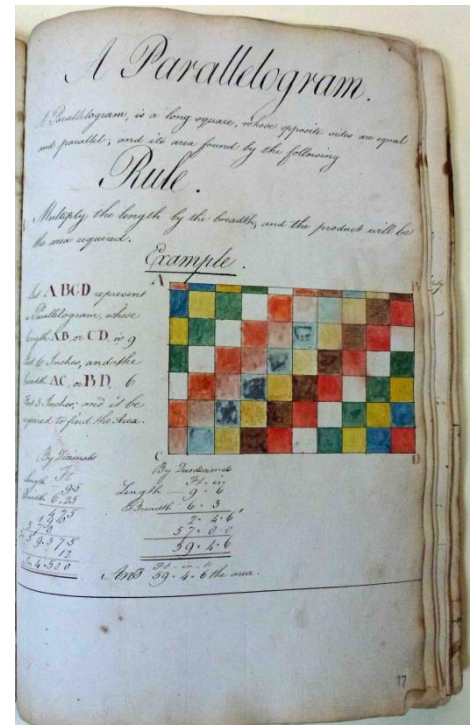 A Parallelogram.
A Parallelogram, is a long square, whose opposite sides are equal
and parallel; and its area found by the following
Rule.
Multiply the length by the breadth, and the product will be
the area required.
Example.
A B
Let ABCD represent
a Parallelogram, whose
length AB, or CD, is 9
Feet 6 Inches, and the
breadth AC, or BD, 6
Feet 3 Inches; and it be
required to find the Area.
C D
By Decimals
Ft
Length 9.5
Breadth 6.25
475
190
570
59.375
12
In 4.500
By Duodecimals
Ft. in
Length 9 . 6
Breadth 6 . 3
2 . 4 . 6
57 . 0 . 0
59 . 4 . 6
Ans 59 . 4 . 6 the area.
17